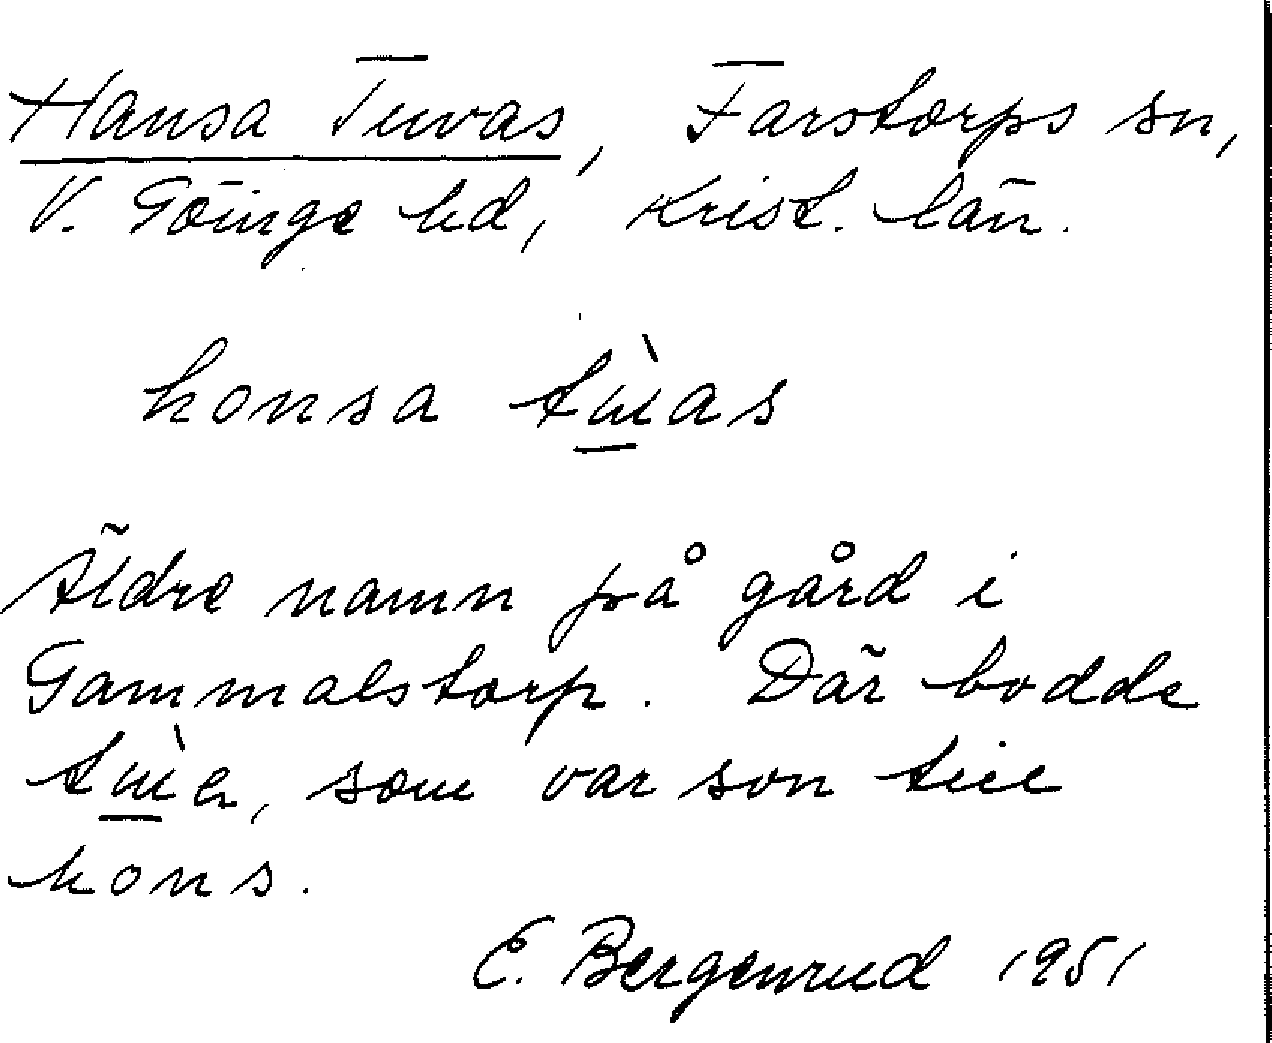 Hansa Tuvas, Farstorps sn,
V. Göinge hd, Krist. län.
honsa tùas
Äldre namn på gård i
Gammalstorp. Där bodde
tùe, som var son till
hons.
E. Bergenrud 1951